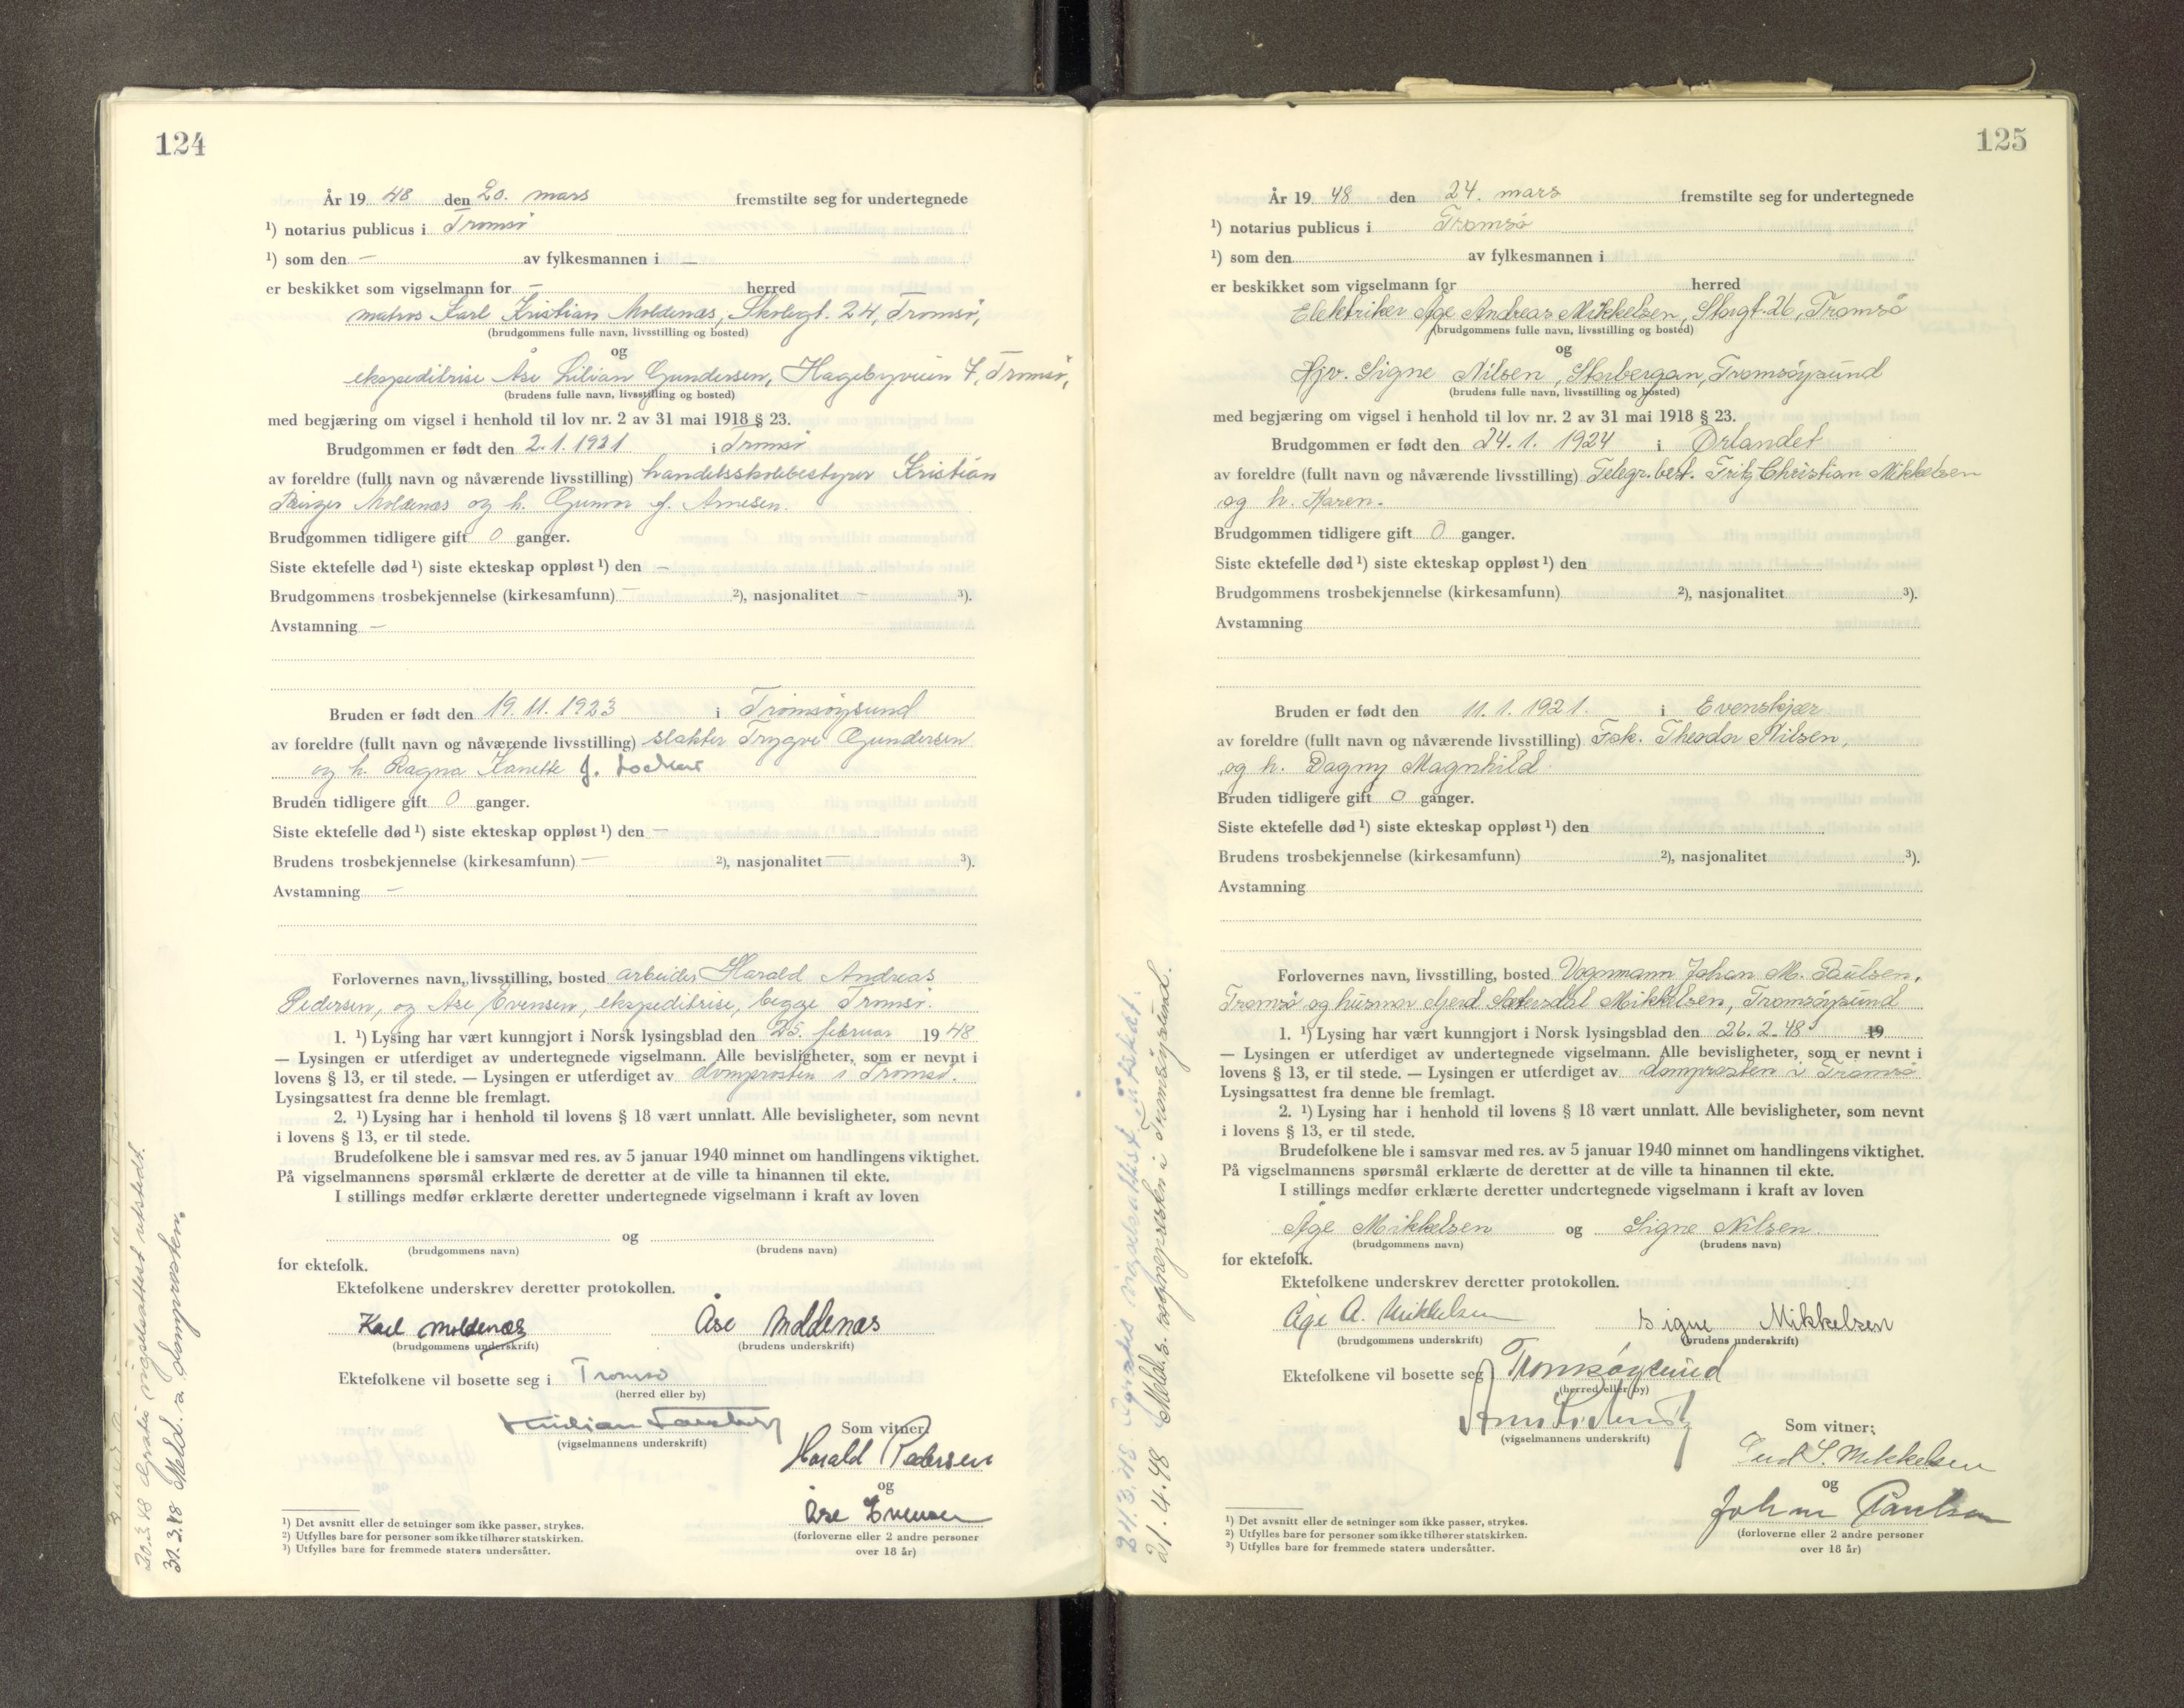 124
År 19 48 den 20. mars fremstilte seg for undertegnede
¹) notarius publicus i Tromsø
¹) som den — av fylkesmannen i —
er beskikket som vigselmann for — herred
matros Karl Kristian Moldenæs, Skolegt. 24, Tromsø,
(brudgommens fulle navn, livsstilling og bosted)
og
ekspeditrise Åse Lilian Gundersen, Hagebyveien 7, Tromsø,
(brudens fulle navn, livsstilling og bosted)
med begjæring om vigsel i henhold til lov nr. 2 av 31 mai 1918 § 23.
Brudgommen er født den 2.1.1921 i Tromsø
av foreldre (fullt navn og nåværende livsstilling) handelsskolebestyrer Kristian
Birger Moldenæs og h. Gunvor f. Arnesen.
Brudgommen tidligere gift 0 ganger.
Siste ektefelle død ¹) siste ekteskap oppløst ¹) den —
Brudgommens trosbekjennelse (kirkesamfunn) — ²), nasjonalitet — ³).
Avstamning —
Bruden er født den 19.11.1923 i Tromsøysund
av foreldre (fullt navn og nåværende livsstilling) slakter Trygve Gundersen
og h. Ragna Kanette f.
Bruden tidligere gift 0 ganger.
Siste ektefelle død ¹) siste ekteskap oppløst ¹) den —
Brudens trosbekjennelse (kirkesamfunn) — ²), nasjonalitet — ³).
Avstamning —
Forlovernes navn, livsstilling, bosted arbeider Harald Andreas
Pedersen, og Åse Evensen, ekspeditrise, begge Tromsø.
1. ¹) Lysing har vært kunngjort i Norsk lysingsblad den 25. februar 19 48
— Lysingen er utferdiget av undertegnede vigselmann. Alle bevisligheter, som er nevnt i
lovens § 13, er til stede. — Lysingen er utferdiget av domprosten i Tromsø.
Lysingsattest fra denne ble fremlagt.
2. ¹) Lysing har i henhold til lovens § 18 vært unnlatt. Alle bevisligheter, som nevnt
i lovens § 13, er til stede.
Brudefolkene ble i samsvar med res. av 5 januar 1940 minnet om handlingens viktighet.
På vigselmannens spørsmål erklærte de deretter at de ville ta hinannen til ekte.
I stillings medfør erklærte deretter undertegnede vigselmann i kraft av loven
og
(brudgommens navn) (brudens navn)
for ektefolk.
Ektefolkene underskrev deretter protokollen.
Karl Moldenæs Åse Moldenæs
(brudgommens underskrift) (brudens underskrift)
Ektefolkene vil bosette seg i Tromsø
(herred eller by)
(vigselmannens underskrift)
Som vitner:
Harald Pedersen
og
Åse Evensen
(forloverne eller 2 andre personer
over 18 år)
¹) Det avsnitt eller de setninger som ikke passer, strykes.
²) Utfylles bare for personer som ikke tilhører statskirken.
³) Utfylles bare for fremmede staters undersåtter.
20.3.48 Gratis vigselsattest utstedt.
31.3.48 Meld. s. domprosten.
125
År 19 48 den 24. mars fremstilte seg for undertegnede
¹) notarius publicus i Tromsø
¹) som den av fylkesmannen i
er beskikket som vigselmann for herred
Elektriker Åge Andreas Mikkelsen, Storgt. 26, Tromsø
(brudgommens fulle navn, livsstilling og bosted)
og
Hjv. Signe Nilsen, Storbergan, Tromsøysund
(brudens fulle navn, livsstilling og bosted)
med begjæring om vigsel i henhold til lov nr. 2 av 31 mai 1918 § 23.
Brudgommen er født den 24.1. 1924 i Ørlandet
av foreldre (fullt navn og nåværende livsstilling) Telegr.best. Fritz Christian Mikkelsen
og h. Karen.
Brudgommen tidligere gift 0 ganger.
Siste ektefelle død ¹) siste ekteskap oppløst ¹) den
Brudgommens trosbekjennelse (kirkesamfunn) ²), nasjonalitet ³).
Avstamning
Bruden er født den 11.1.1921. i Evenskjær
av foreldre (fullt navn og nåværende livsstilling) Fsk. Theodor Nilsen,
og h. Dagny Magnhild
Bruden tidligere gift 0 ganger.
Siste ektefelle død ¹) siste ekteskap oppløst ¹) den
Brudens trosbekjennelse (kirkesamfunn) ²), nasjonalitet ³).
Avstamning
Forlovernes navn, livsstilling, bosted Vognmann Johan M. Paulsen,
Tromsø og husmor Gjerd Sætersdal Mikkelsen, Tromsøysund
1. ¹) Lysing har vært kunngjort i Norsk lysingsblad den 26.2.48 19
— Lysingen er utferdiget av undertegnede vigselmann. Alle bevisligheter, som er nevnt i
lovens § 13, er til stede. — Lysingen er utferdiget av domprosten i Tromsø
Lysingsattest fra denne ble fremlagt.
2. ¹) Lysing har i henhold til lovens § 18 vært unnlatt. Alle bevisligheter, som nevnt
i lovens § 13, er til stede.
Brudefolkene ble i samsvar med res. av 5 januar 1940 minnet om handlingens viktighet.
På vigselmannens spørsmål erklærte de deretter at de ville ta hinannen til ekte.
I stillings medfør erklærte deretter undertegnede vigselmann i kraft av loven
Åge Mikkelsen og Signe Nilsen.
(brudgommens navn) (brudens navn)
for ektefolk.
Ektefolkene underskrev deretter protokollen.
Åge A. Mikkelsen Signe Mikkelsen
(brudgommens underskrift) (brudens underskrift)
Ektefolkene vil bosette seg i Tromsøysund
(herred eller by)
(vigselmannens underskrift)
Som vitner:
S. Mikkelsen
og
Johan Paulsen
(forloverne eller 2 andre personer
over 18 år)
¹) Det avsnitt eller de setninger som ikke passer, strykes.
²) Utfylles bare for personer som ikke tilhører statskirken.
³) Utfylles bare for fremmede staters undersåtter.
24.3.48. Gratis vigselsattest utstedt.
21.4.48 Meld. s. sognepresten i Tromsøysund.